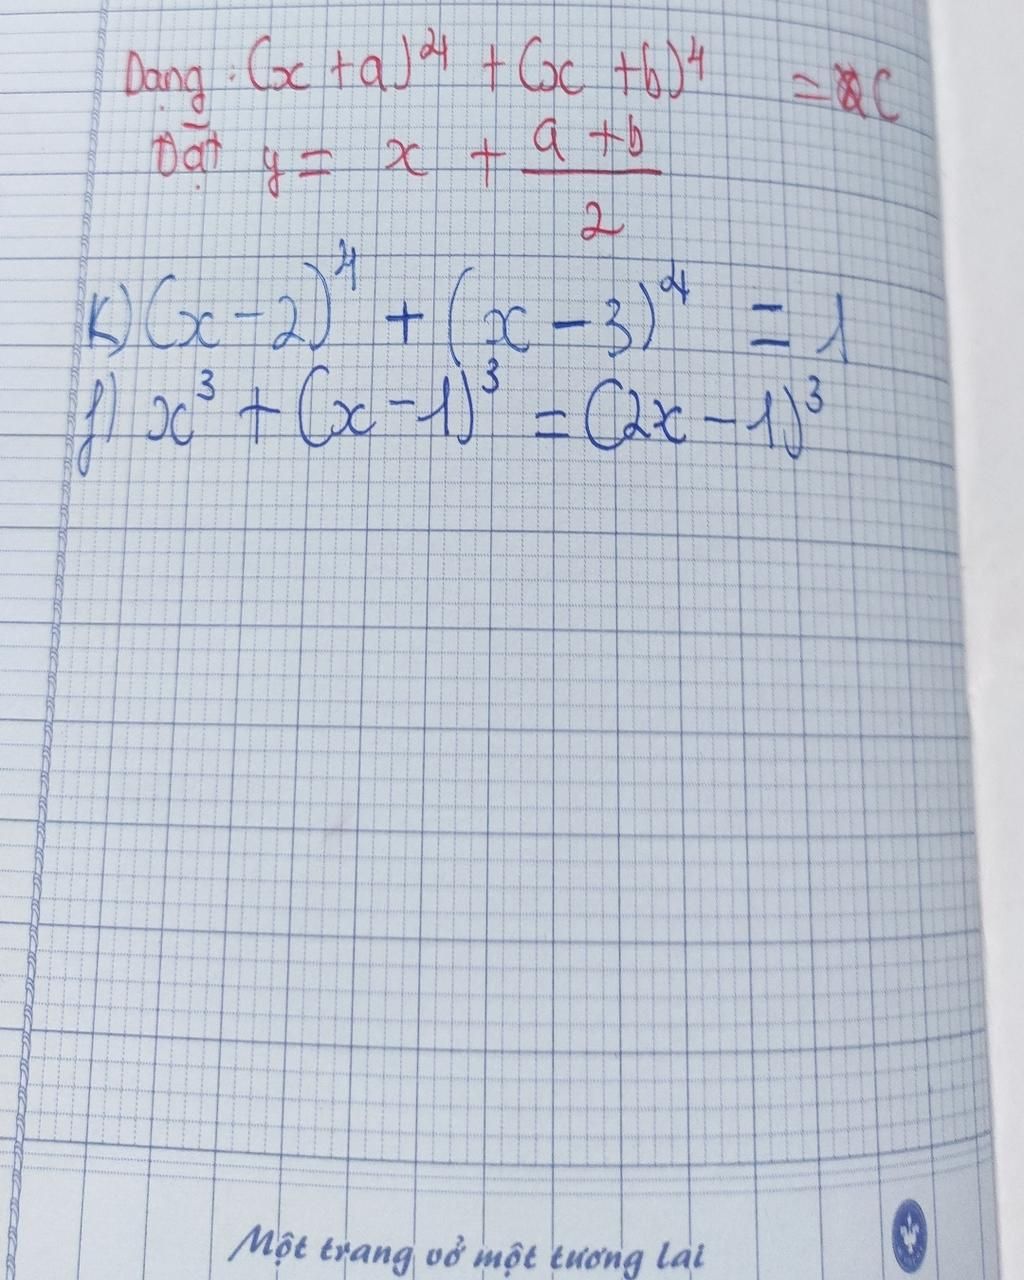 Dạng: (x + a)⁴ + (x + b)⁴ = C
Đặt y = x + (a + b)/2
k) (x - 2)⁴ + (x - 3)⁴ = 1
f) x³ + (x - 1)³ = (2x - 1)³
Một trang vở một tương lai